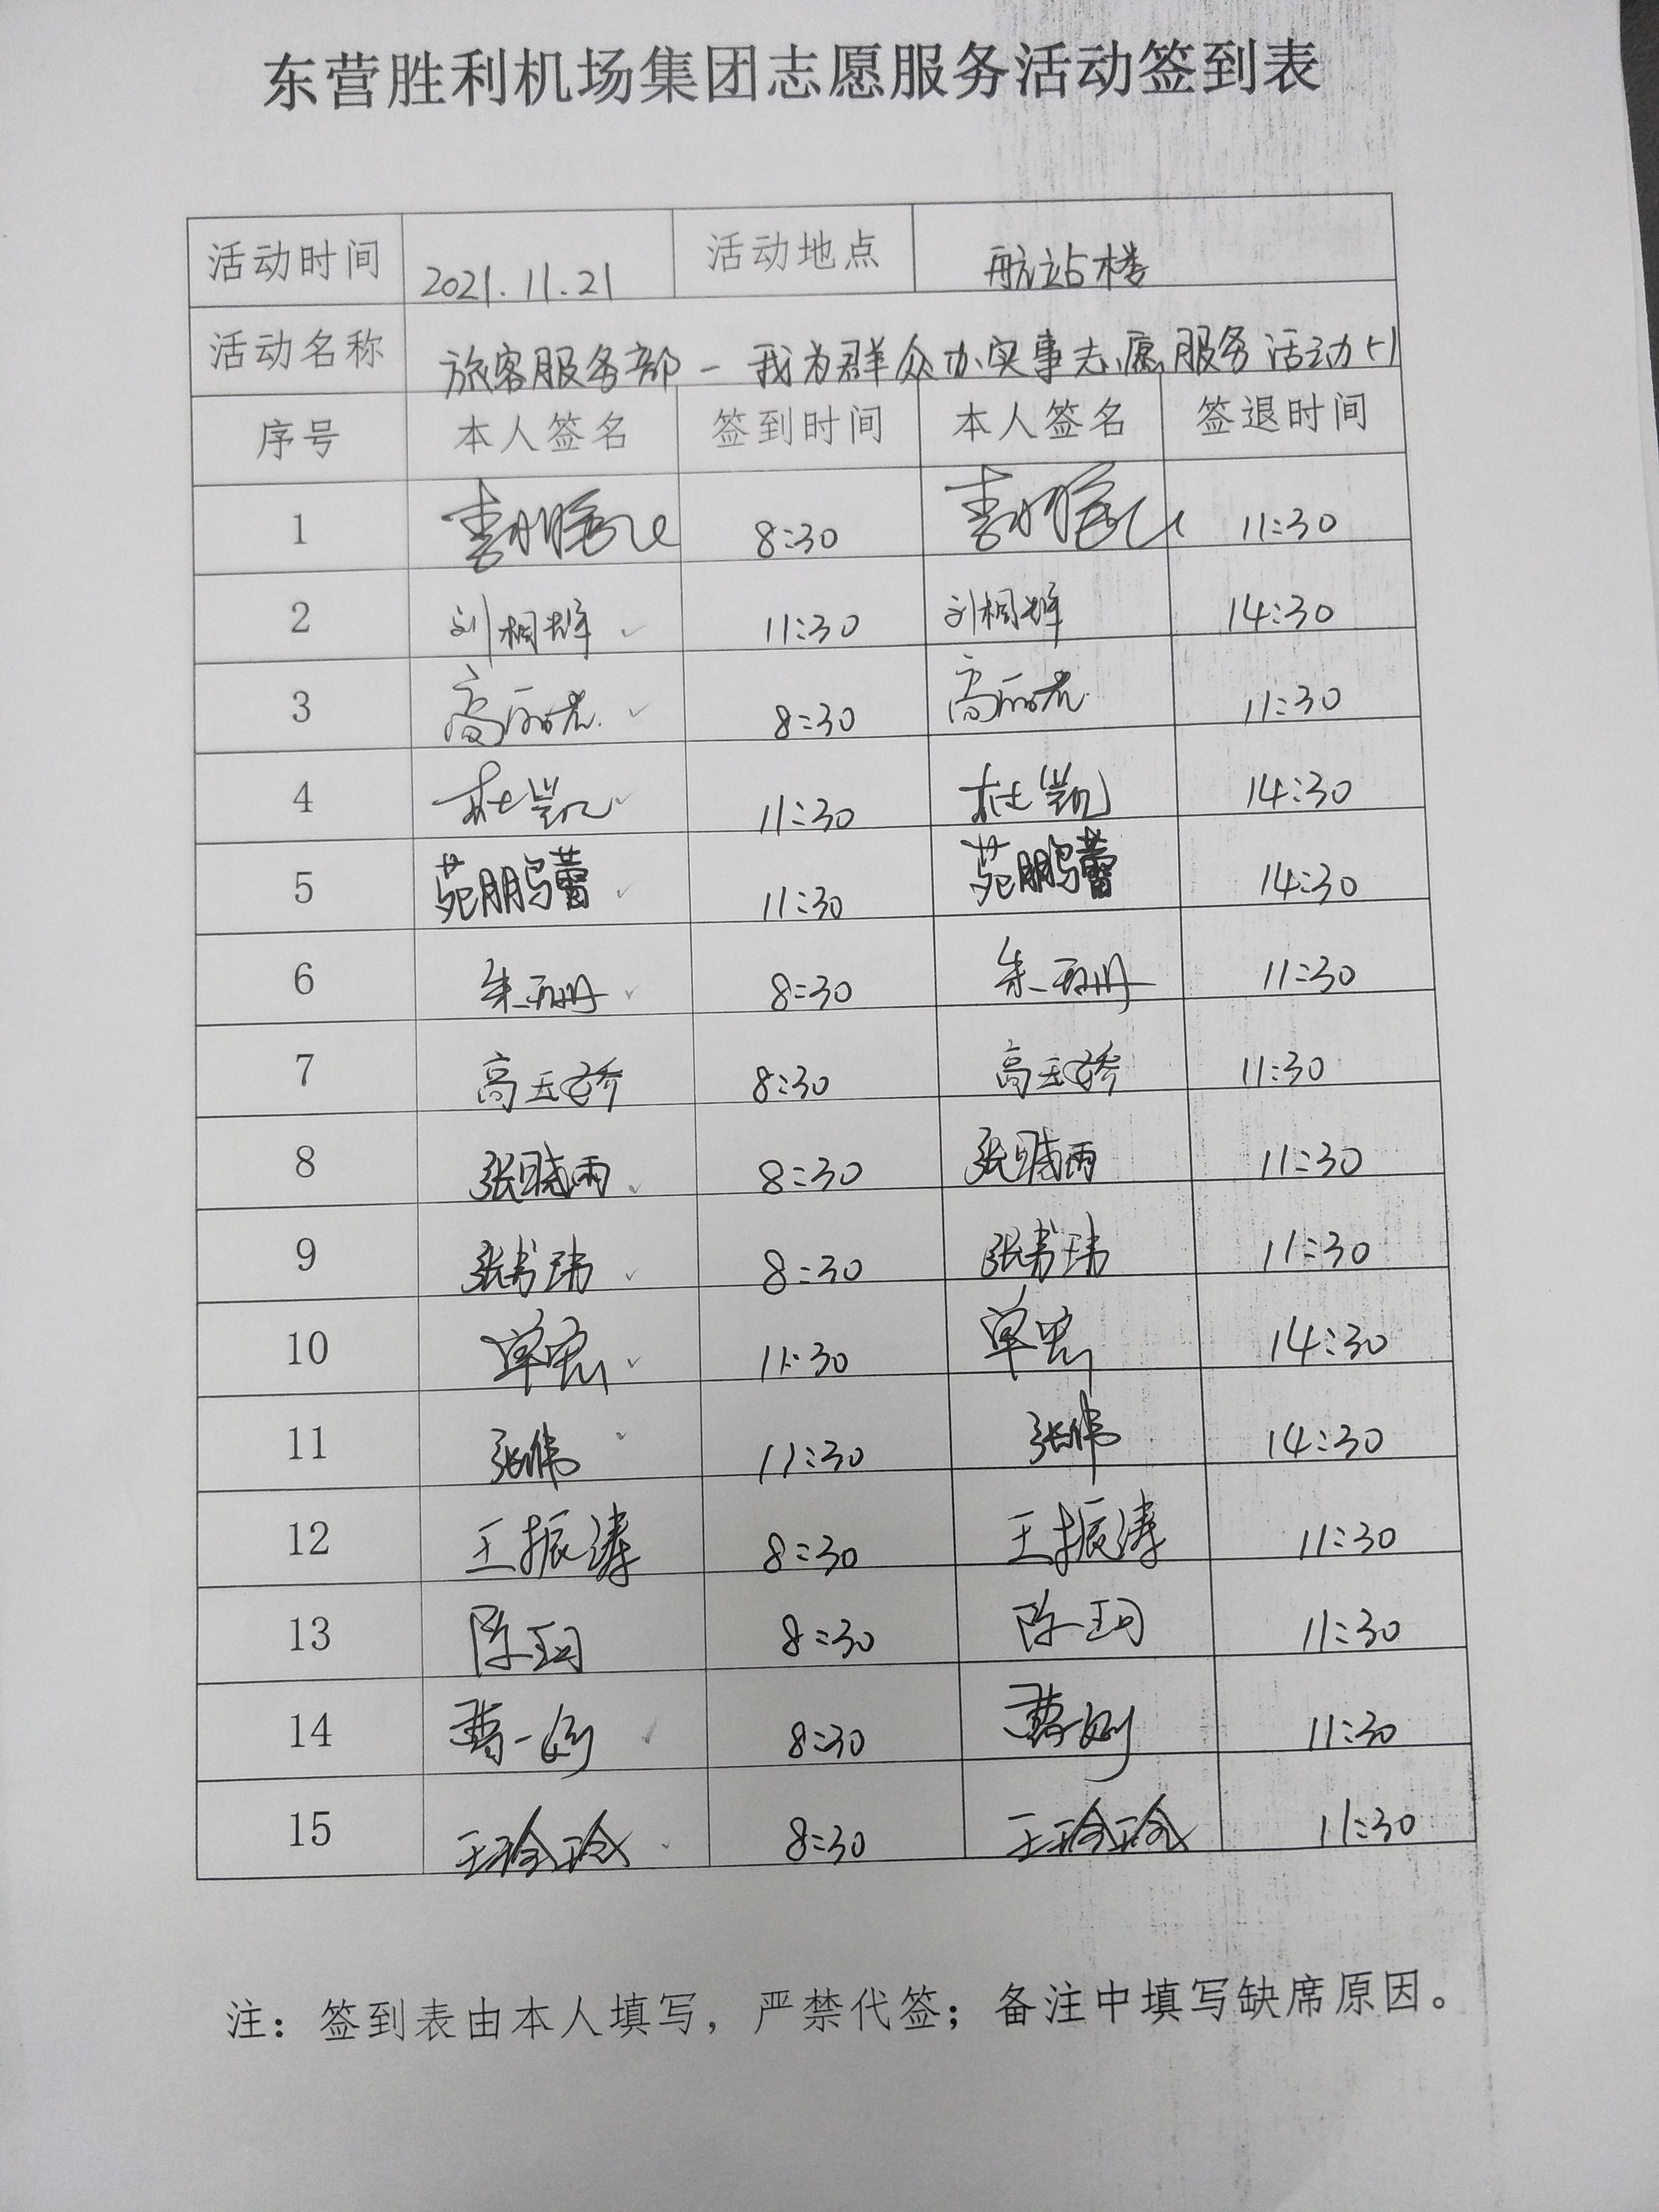 东营胜利机场集团志愿服务活动签到表
活动时间 2021.11.21 活动地点 航站楼
活动名称 旅客服务部-我为群众办实事志愿服务活动
序号 本人签名 签到时间 本人签名 签退时间
1 8:30 11:30
2 刘桐辉 11:30 刘桐辉 14:30
3 8:30 11:30
4 杜凯 11:30 杜凯 14:30
5 苑鹏蕾 11:30 苑鹏蕾 14:30
6 朱丽丹 8:30 朱丽丹 11:30
7 高玉婷 8:30 高玉婷 11:30
8 张晓雨 8:30 张晓雨 11:30
9 张书玮 8:30 张书玮 11:30
10 11:30 14:30
11 张伟 11:30 张伟 14:30
12 王振涛 8:30 王振涛 11:30
13 陈珂 8:30 陈珂 11:30
14 曹一 8:30 曹一 11:30
15 王玲玲 8:30 王玲玲 11:30
注：签到表由本人填写，严禁代签；备注中填写缺席原因。